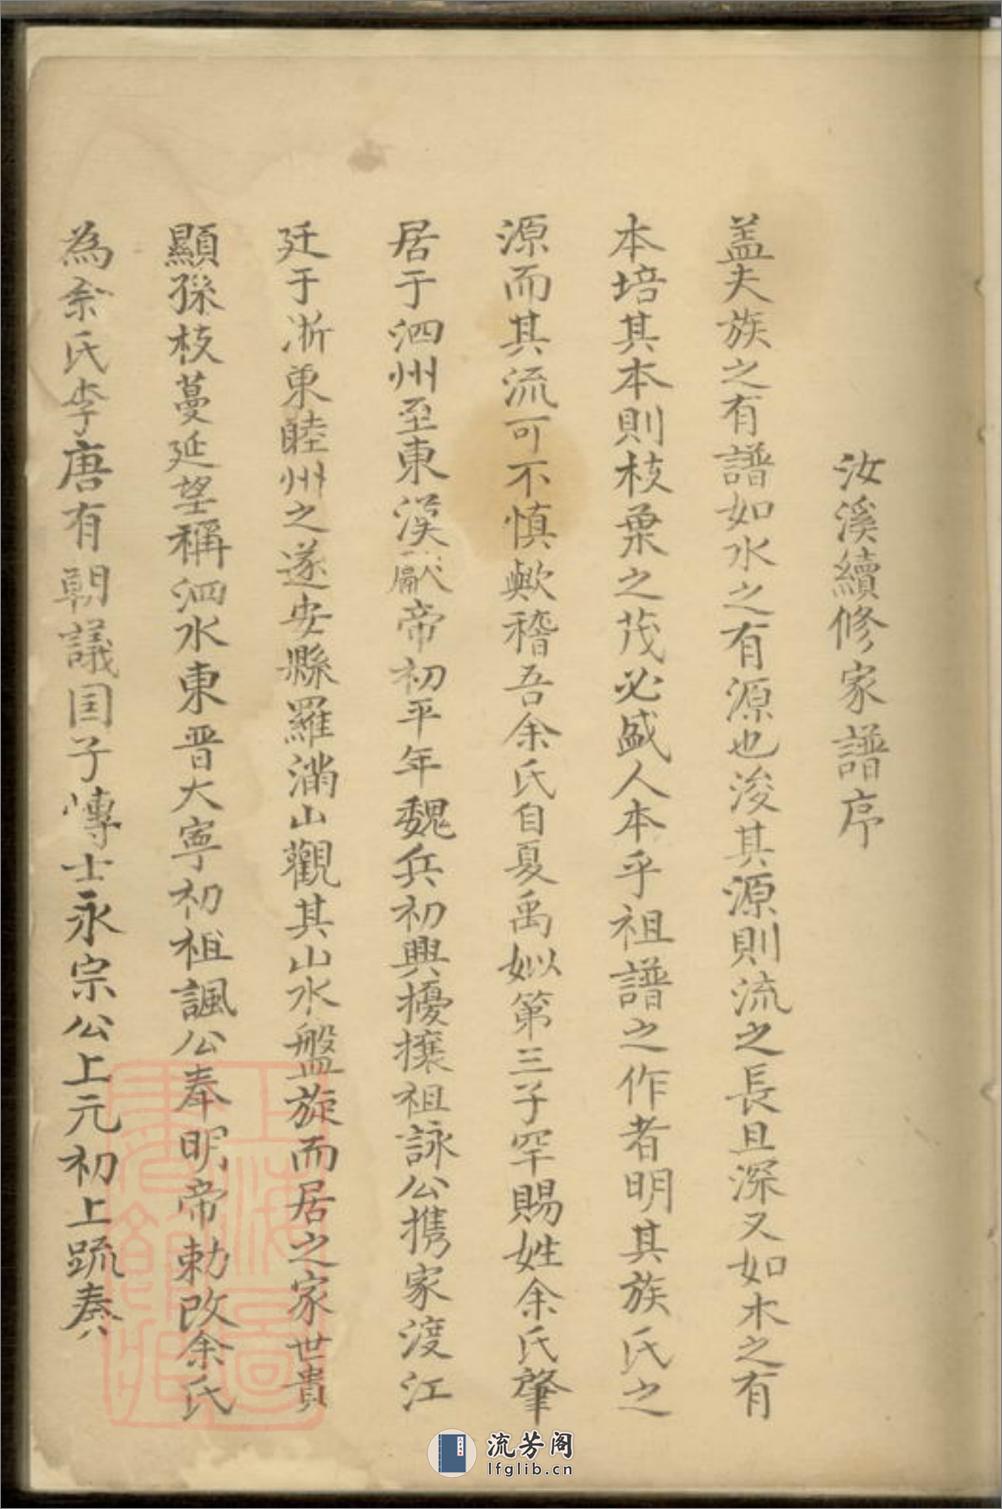 汝溪續修家譜序
盖夫族之有譜如水之有源也浚其源則流之長且深又如木之有
本培其本則枝葉之茂必盛人本乎祖譜之作者明其族氏之
源而其流可不慎歟稽吾余氏自夏禹姒第三子罕賜姓余氏肇
居于泗州至東漢獻帝初平年魏兵初興擾攘祖詠公携家渡江
迁于浙東睦州之遂安縣羅滿山觀其山水盤旋而居之家世貴
顯孫枝蔓延望稱泗水東晋大寧初祖諷公奉明帝勅改余氏
為佘氏李唐有朝議国子博士永宗公上元初上疏奏
流芳阁
lfglib.cn